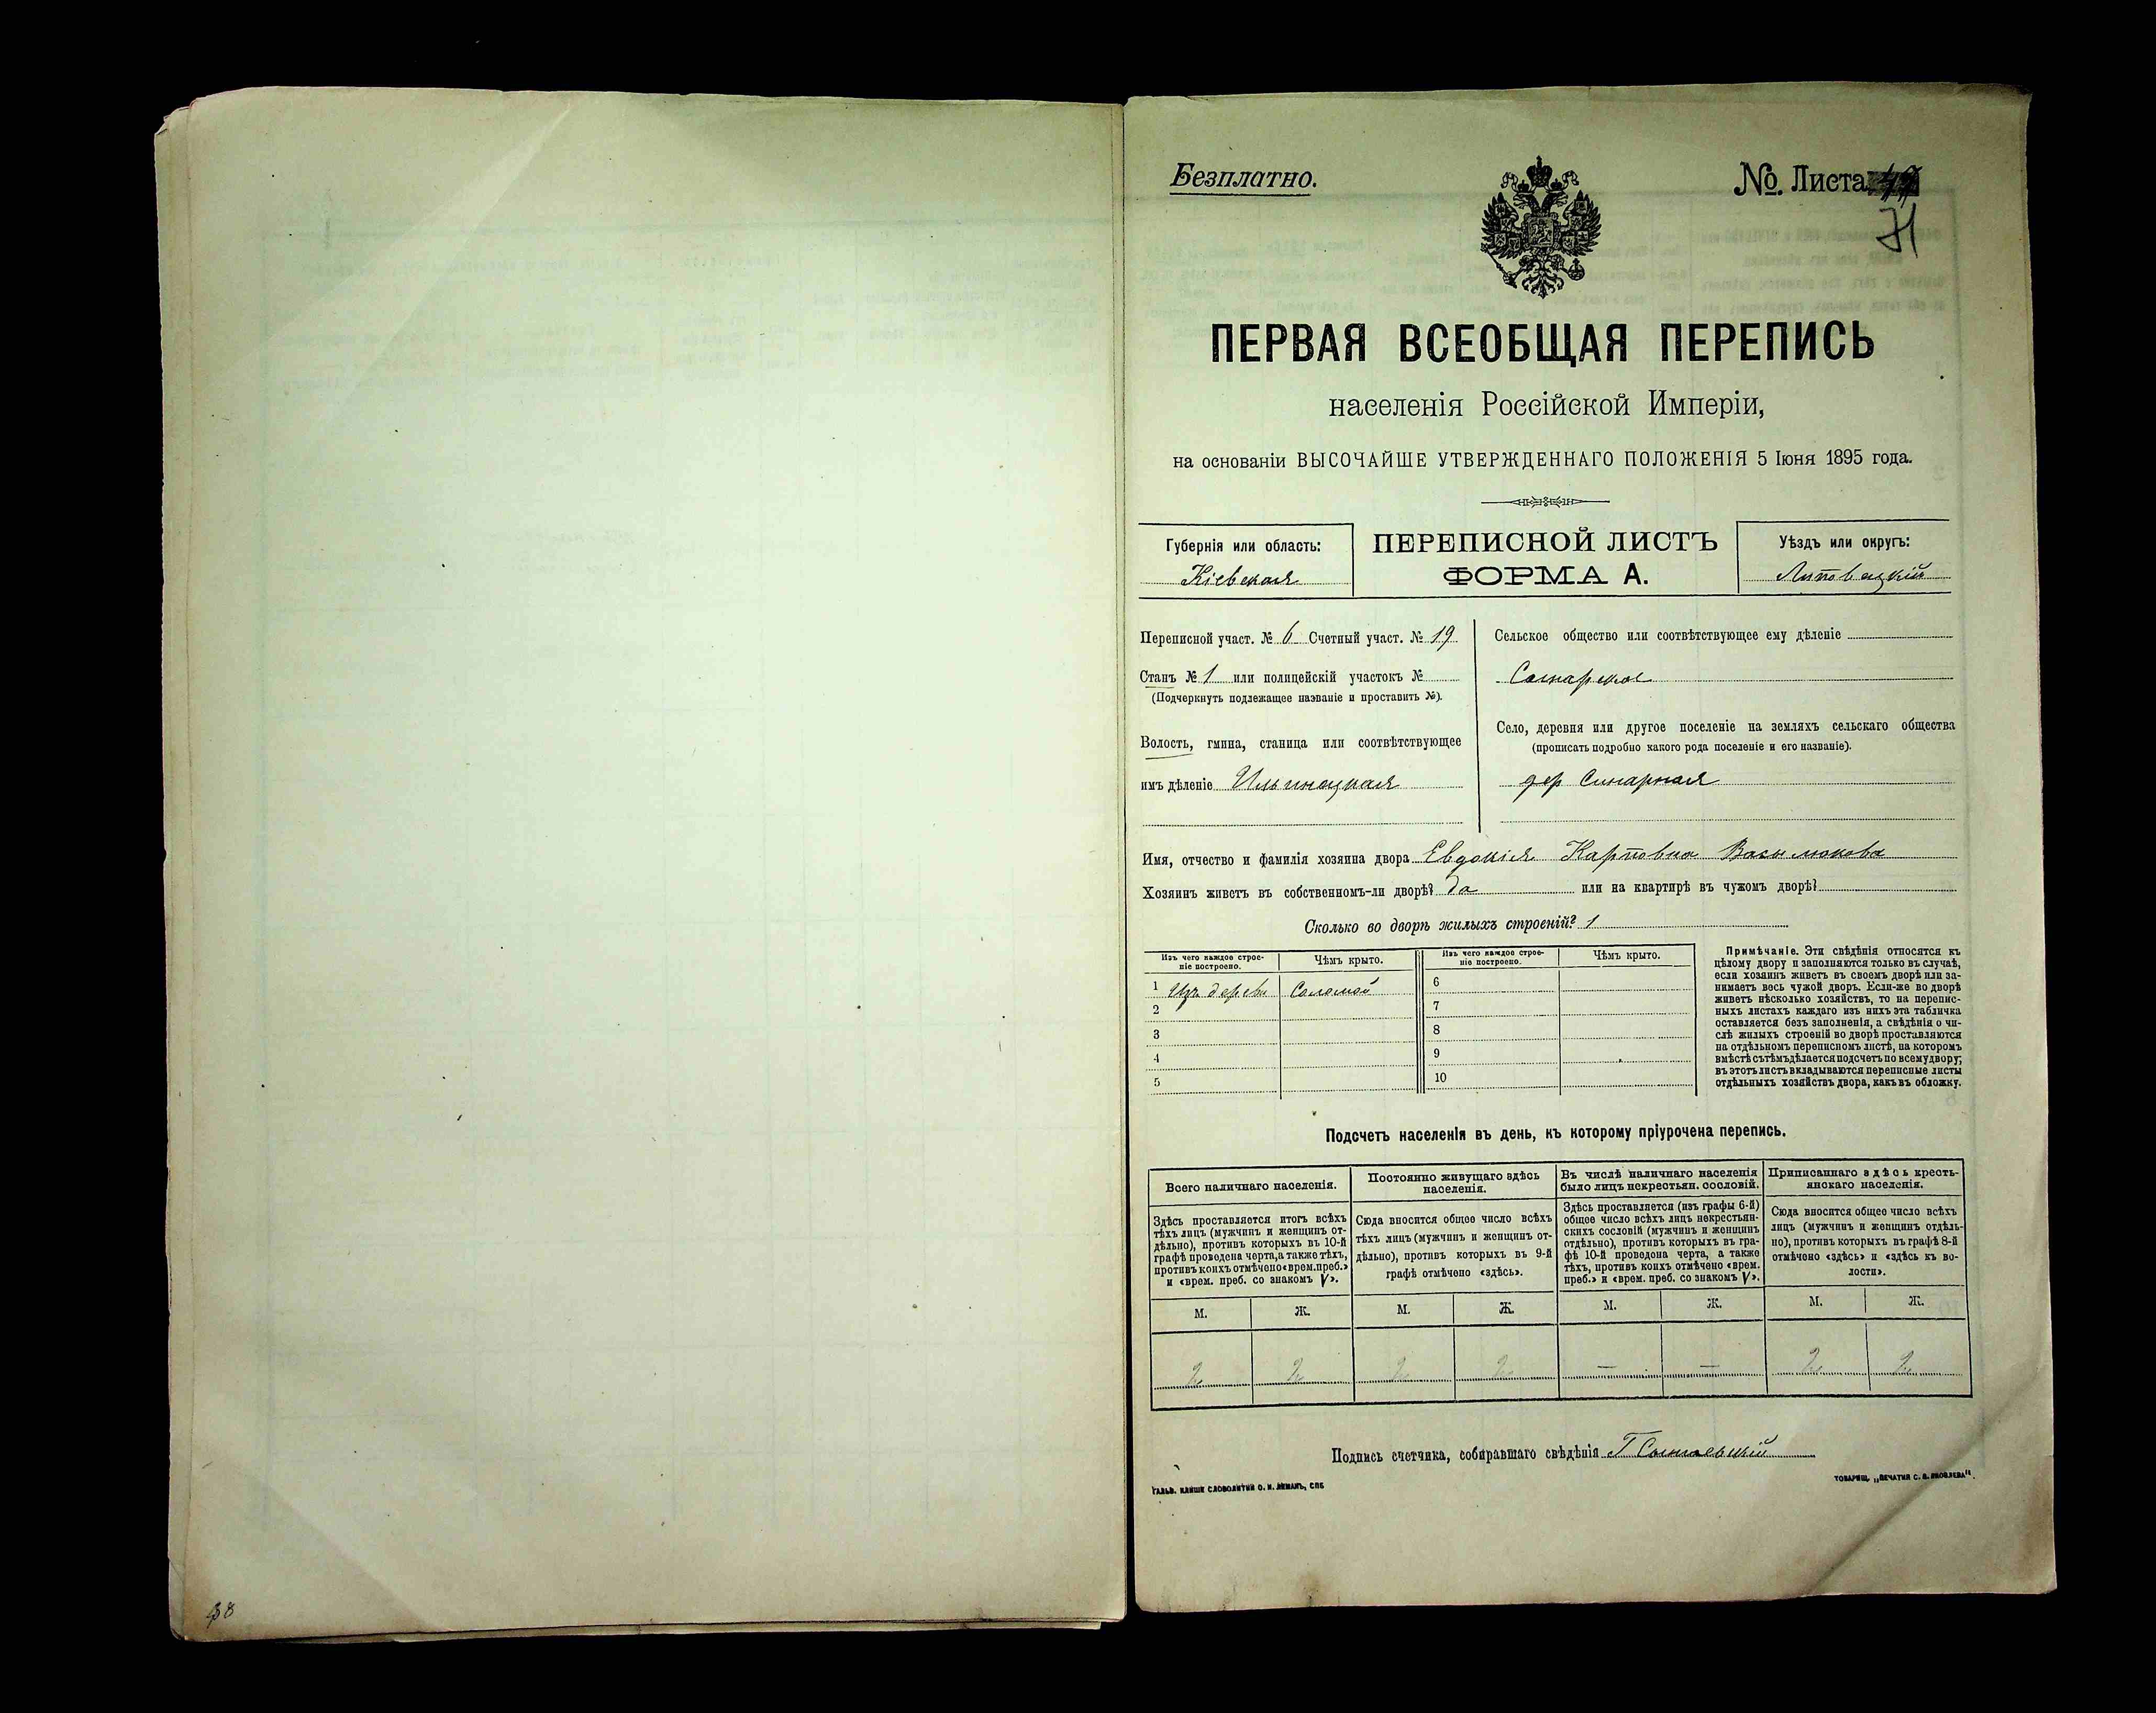 Безплатно.
№. Листа
71
ПЕРВАЯ ВСЕОБЩАЯ ПЕРЕПИСЬ
населенія Россійской Имперіи,
на основаніи ВЫСОЧАЙШЕ УТВЕРЖДЕННАГО ПОЛОЖЕНІЯ 5 Іюня 1895 года.
Губернія или область:
Кіевская
ПЕРЕПИСНОЙ ЛИСТЪ
ФОРМА А.
Уѣздъ или округъ:
Липовецкій
Переписной участ. № 6 Счетный участ. № 19
Станъ № 1 или полицейскій участокъ №
(Подчеркнуть подлежащее названіе и проставить №).
Волость, гмина, станица или соотвѣтствующее
имъ дѣленіе Ильинецкая
Сельское общество или соотвѣтствующее ему дѣленіе
Село, деревня или другое поселеніе на земляхъ сельскаго общества
(прописать подробно какого рода поселеніе и его названіе).
дер Синарная
Имя, отчество и фамилія хозяина двора Евдокія Карповна
Хозяинъ живетъ въ собственномъ-ли дворѣ? да или на квартирѣ въ чужомъ дворѣ?
Сколько во дворѣ жилыхъ строеній? 1
Изъ чего каждое строе-
ніе построено.
Чѣмъ крыто.
Изъ чего каждое строе-
ніе построено.
Чѣмъ крыто.
1 Изъ дерева Соломой
2
3
4
5
6
7
8
9
10
Примѣчаніе. Эти свѣдѣнія относятся къ
цѣлому двору и заполняются только въ случаѣ,
если хозяинъ живетъ въ своемъ дворѣ или за-
нимаетъ весь чужой дворъ. Если-же во дворѣ
живетъ нѣсколько хозяйствъ, то на перепис-
ныхъ листахъ каждаго изъ нихъ эта табличка
оставляется безъ заполненія, а свѣдѣнія о чи-
слѣ жилыхъ строеній во дворѣ проставляются
на отдѣльномъ переписномъ листѣ, на которомъ
вмѣстѣ съ тѣмъ дѣлается подсчетъ по всему двору;
въ этотъ листъ вкладываются переписные листы
отдѣльныхъ хозяйствъ двора, какъ въ обложку.
Подсчетъ населенія въ день, къ которому пріурочена перепись.
Всего наличнаго населенія.
Здѣсь проставляется итогъ всѣхъ
тѣхъ лицъ (мужчинъ и женщинъ от-
дѣльно), противъ которыхъ въ 10-й
графѣ проведена черта, а также тѣхъ,
противъ коихъ отмѣчено «врем. преб.»
и «врем. преб. со знакомъ V».
Постоянно живущаго здѣсь
населенія.
Сюда вносится общее число всѣхъ
тѣхъ лицъ (мужчинъ и женщинъ от-
дѣльно), противъ которыхъ въ 9-й
графѣ отмѣчено «здѣсь».
Въ числѣ наличнаго населенія
было лицъ некрестьян. сословій.
Здѣсь проставляется (изъ графы 6-й)
общее число всѣхъ лицъ некрестьян-
скихъ сословій (мужчинъ и женщинъ
отдѣльно), противъ которыхъ въ гра-
фѣ 10-й проведена черта, а также
тѣхъ, противъ коихъ отмѣчено «врем.
преб.» и «врем. преб. со знакомъ V».
Приписаннаго здѣсь кресть-
янскаго населенія.
Сюда вносится общее число всѣхъ
лицъ (мужчинъ и женщинъ отдѣль-
но), противъ которыхъ въ графѣ 8-й
отмѣчено «здѣсь» и «здѣсь къ во-
лости».
М. Ж. М. Ж. М. Ж. М. Ж.
2 2 2 2 — — 2 2
Подпись счетчика, собиравшаго свѣдѣнія
ГАЛЬВ. КЛИШЕ СЛОВОЛИТНИ О. И. ЛЕМАНЪ, СПБ
ТОВАРИЩ. „ПЕЧАТНЯ С. П. ЯКОВЛЕВА".
38